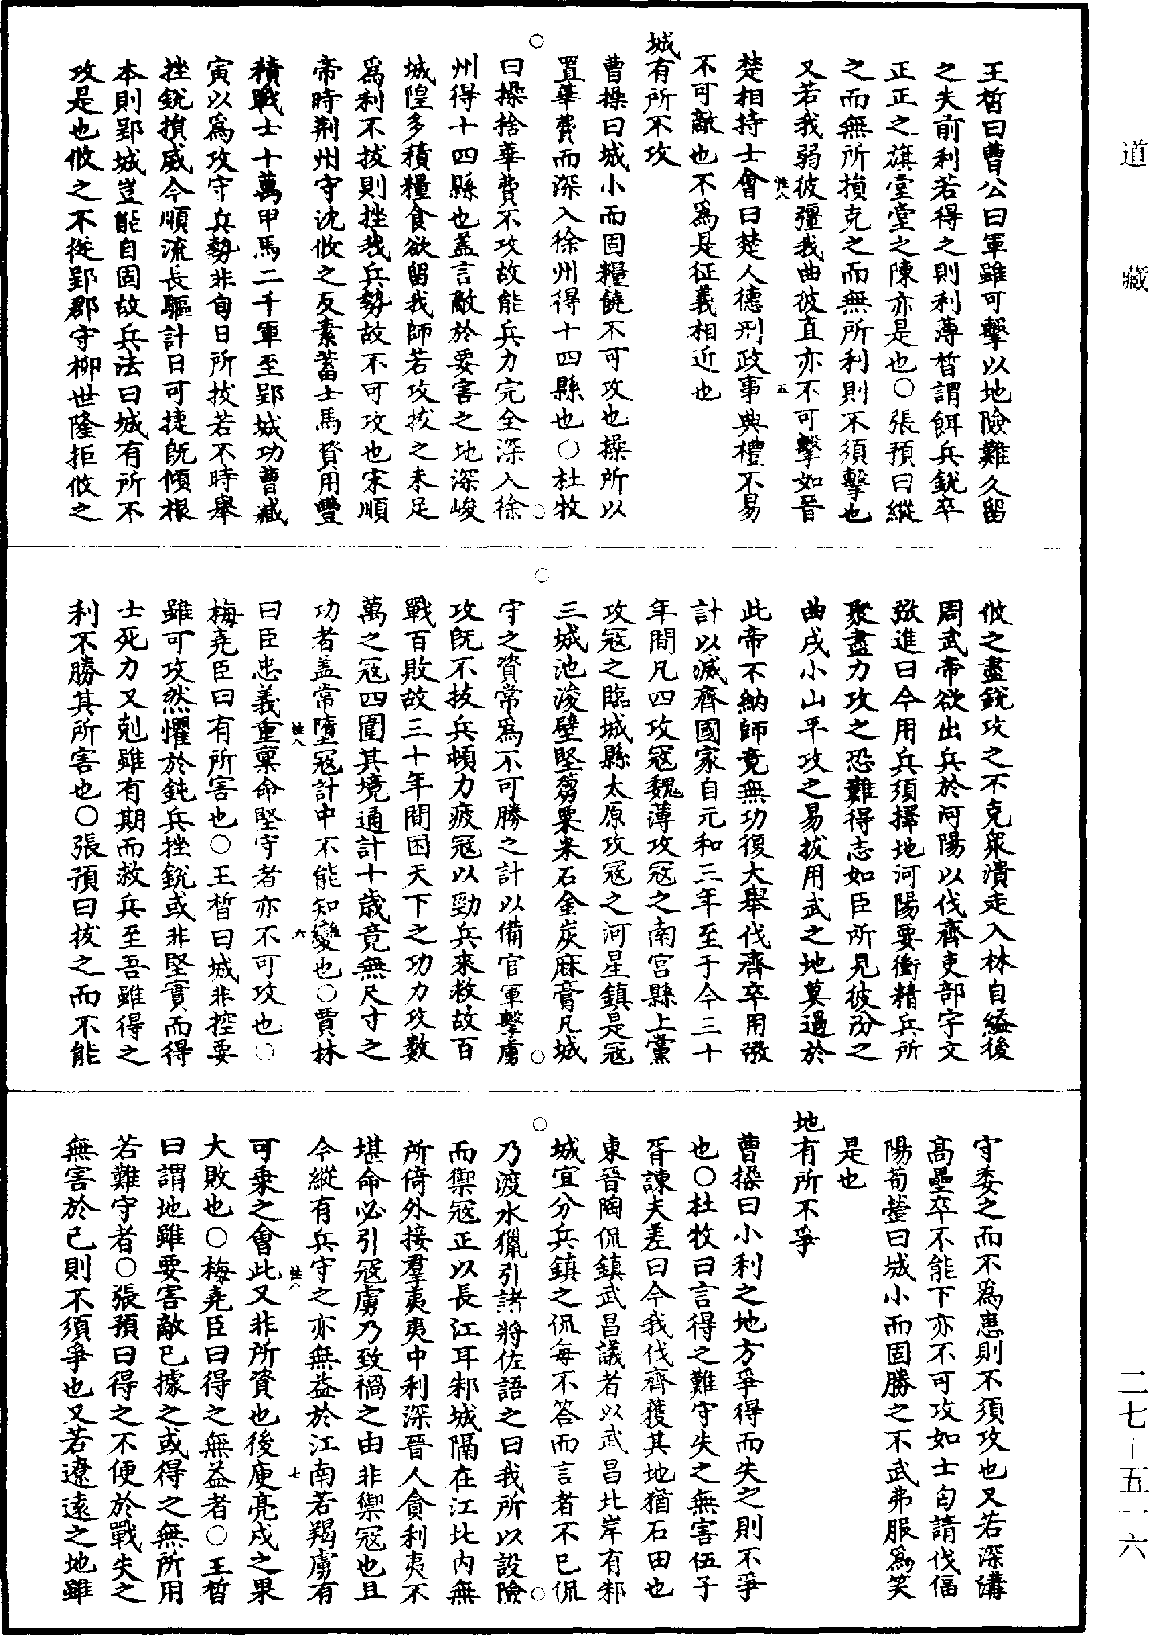 道藏
王晳曰曹公曰軍雖可擊以地險難久留
之失前利若得之則利薄晳謂餌兵銳卒
正正之旗堂堂之陳亦是也○張預曰縱
之而無所損克之而無所利則不須擊也
又若我弱彼彊我曲彼直亦不可擊如晉
楚相持士會曰楚人德刑政事典禮不易
不可敵也不爲是征義相近也
城有所不攻
曹操曰城小而固糧饒不可攻也操所以
置華費而深入徐州得十四縣也○杜牧
曰操捨華費不攻故能兵力完全深入徐
州得十四縣也蓋言敵於要害之地深峻
城隍多積糧食欲留我師若攻拔之未足
爲利不拔則挫我兵勢故不可攻也宋順
帝時荆州守沈攸之反素蓄士馬資用豐
積戰士十萬甲馬二千軍至郢城功曹臧
寅以爲攻守兵勢非旬日所拔若不時舉
挫銳損威今順流長驅計日可捷旣傾根
本則郢城豈能自固故兵法曰城有所不
攻是也攸之不從郢郡守柳世隆拒攸之
攸之盡銳攻之不克衆潰走入林自縊後
周武帝欲出兵於河陽以伐齊吏部宇文
弢進曰今用兵須擇地河陽要衝精兵所
聚盡力攻之恐難得志如臣所見彼汾之
曲戍小山平攻之易拔用武之地莫過於
此帝不納師竟無功復大舉伐齊卒用弢
計以滅齊國家自元和三年至于今三十
年間凡四攻寇魏薄攻寇之南宮縣上黨
攻寇之臨城縣太原攻寇之河星鎮是寇
三城池浚壁堅蒭粟米石金炭麻膏凡城
守之資常爲不可勝之計以備官軍擊虜
攻旣不拔兵頓力疲寇以勁兵來救故百
戰百敗故三十年間困天下之功力攻數
萬之寇四圍其境通計十歲竟無尺寸之
功者蓋常墮寇計中不能知變也○賈林
曰臣忠義重稟命堅守者亦不可攻也○
梅堯臣曰有所害也○王晳曰城非控要
雖可攻然懼於鈍兵挫銳或非堅實而得
士死力又剋雖有期而救兵至吾雖得之
利不勝其所害也○張預曰拔之而不能
守委之而不爲患則不須攻也又若深溝
高壘卒不能下亦不可攻如士匄請伐偪
陽荀罃曰城小而固勝之不武弗服爲笑
是也
地有所不爭
曹操曰小利之地方爭得而失之則不爭
也○杜牧曰言得之難守失之無害伍子
胥諫夫差曰今我伐齊獲其地猶石田也
東晉陶侃鎮武昌議者以武昌北岸有邾
城宜分兵鎮之侃每不答而言者不已侃
乃渡水獵引諸將佐語之曰我所以設險
而禦寇正以長江耳邾城隔在江北内無
所倚外接羣夷夷中利深晉人貪利夷不
堪命必引寇虜乃致禍之由非禦寇也且
今縱有兵守之亦無益於江南若羯虜有
可乘之會此又非所資也後庾亮戍之果
大敗也○梅堯臣曰得之無益者○王晳
曰謂地雖要害敵已據之或得之無所用
若難守者○張預曰得之不便於戰失之
無害於己則不須爭也又若遼遠之地雖
二七一五一六